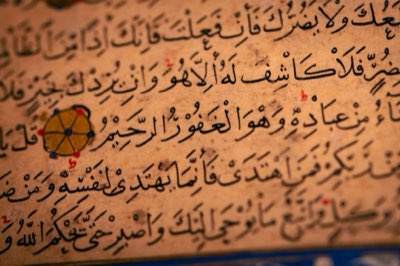 يَنْفَعُكَ وَلَا يَضُرُّكَ فَاِنْ فَعَلْتَ فَاِنَّكَ اِذًا مِنَ الظَّالِمِينَ
بِضُرٍّ فَلَا كَاشِفَ لَهُ اِلَّا هُوَ وَاِنْ يُرِدْكَ بِخَيْرٍ فَلَا
يَشَاءُ مِنْ عِبَادِهِ وَهُوَ الْغَفُورُ الرَّحِيمُ قُلْ يَا
مِنْ رَبِّكُمْ فَمَنِ اهْتَدَى فَاِنَّمَا يَهْتَدِي لِنَفْسِهِ وَمَنْ ضَلَّ
بِوَكِيلٍ وَاتَّبِعْ مَا يُوحَى اِلَيْكَ وَاصْبِرْ حَتَّى يَحْكُمَ اللّٰهُ وَ